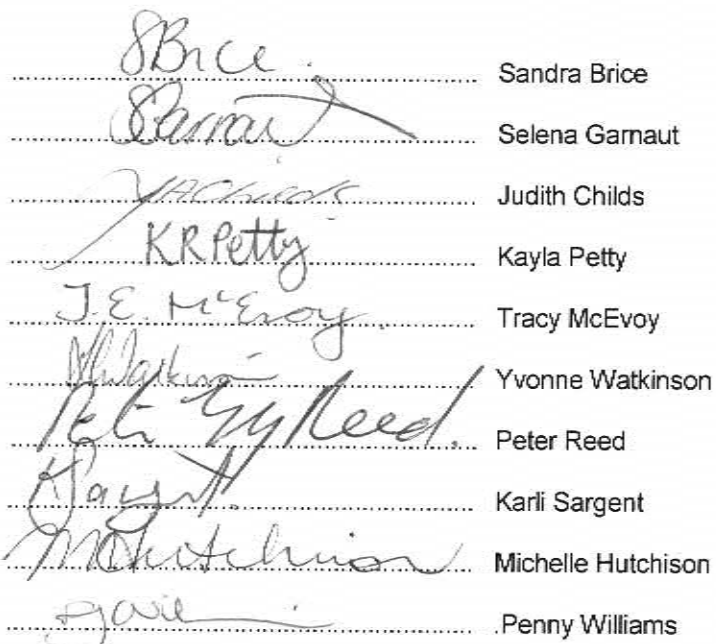 SBrice. Sandra Brice
SGarnaut Selena Garnaut
JAChilds Judith Childs
KRPetty Kayla Petty
T.E. McEvoy. Tracy McEvoy
Watkinson Yvonne Watkinson
Peter Reed. Peter Reed
KSargent. Karli Sargent
MHutchison Michelle Hutchison
Penny Williams